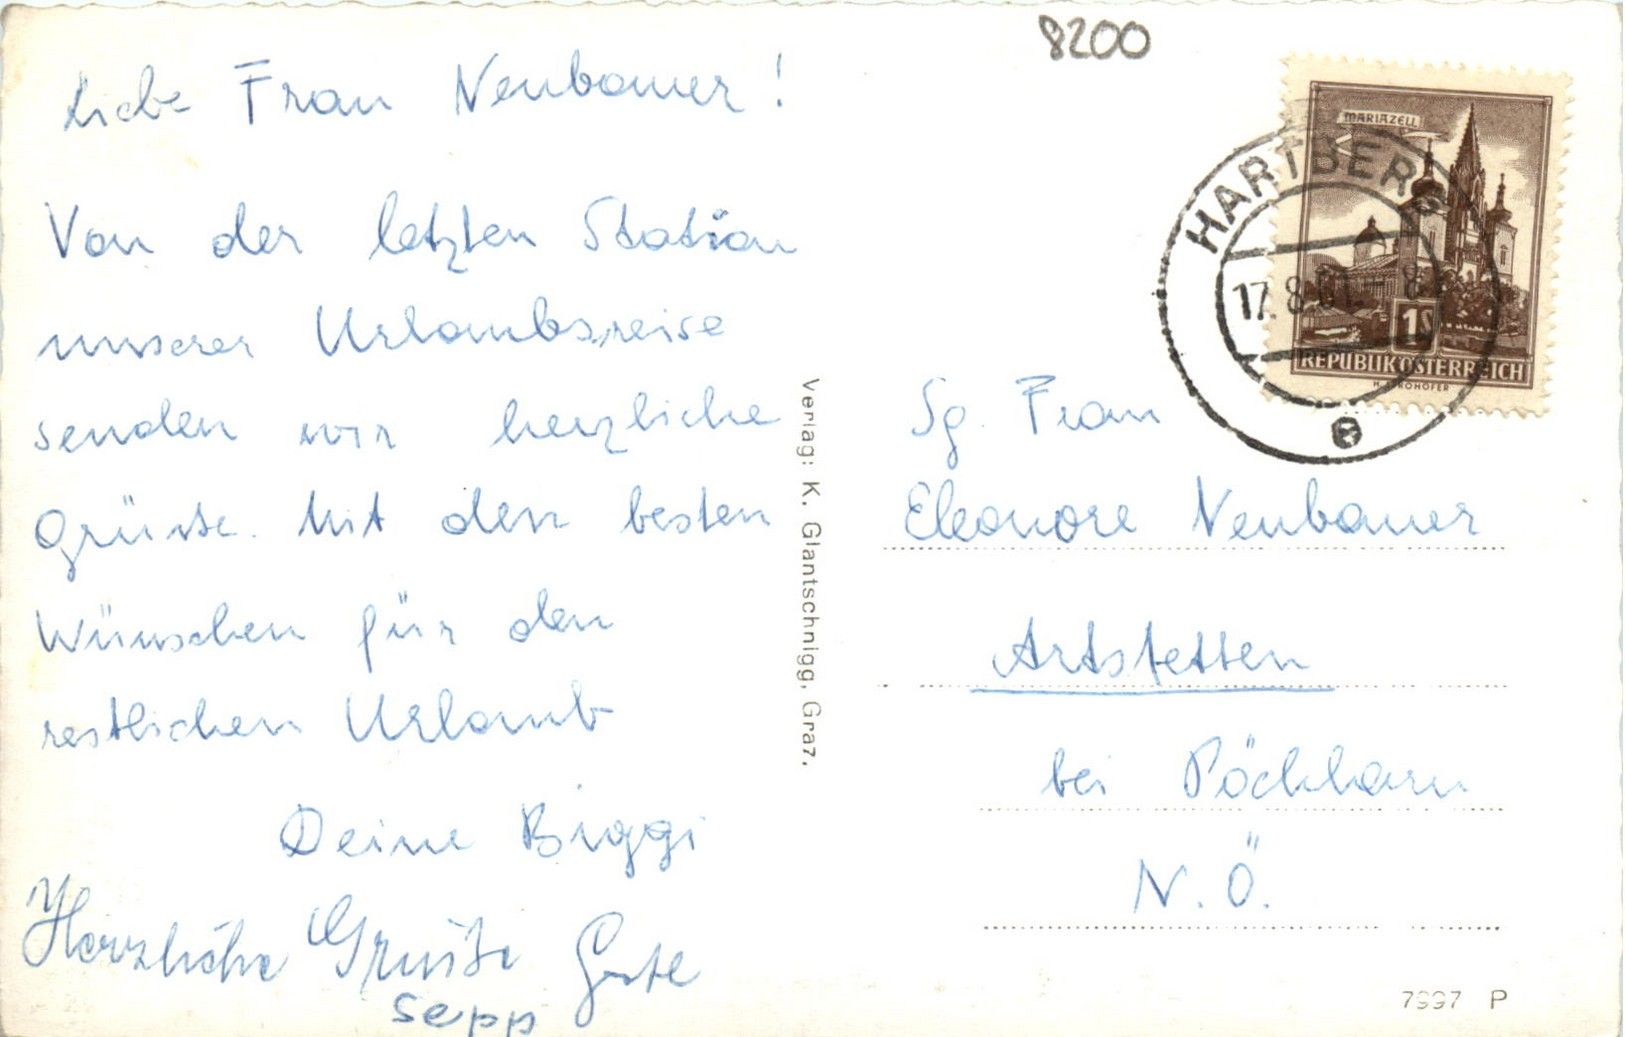 8200
Liebe Frau Neubauer!
Von der letzten Station
unserer Urlaubsreise
senden wir herzliche
Grüsse. Mit den besten
Wünschen für den
restlichen Urlaub
Deine Biggi
Herzliche Grüße
Sepp
Verlag: K. Glantschnigg, Graz.
MARIAZELL
1S
REPUBLIK ÖSTERREICH
HARTBERG
17. 8.
e
Sg. Frau
Eleonore Neubauer
Artstetten
bei Pöchlarn
N.Ö.
7997 P